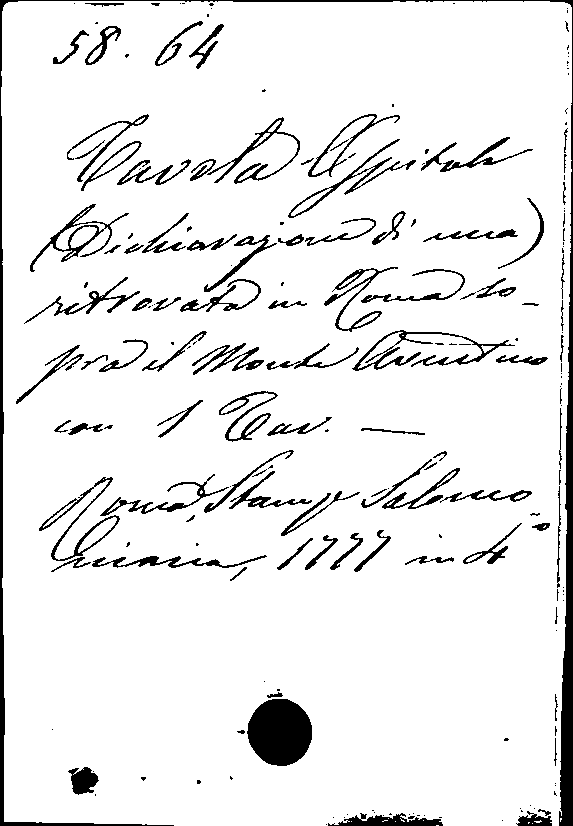 58. 64
Tavola Ospitale
(Dichiarazione di una)
ritrovata in Roma so-
pra il Monte Aventino
con 1 Tav. —
Roma, Stamp. Salomo-
niana, 1777 in 4°